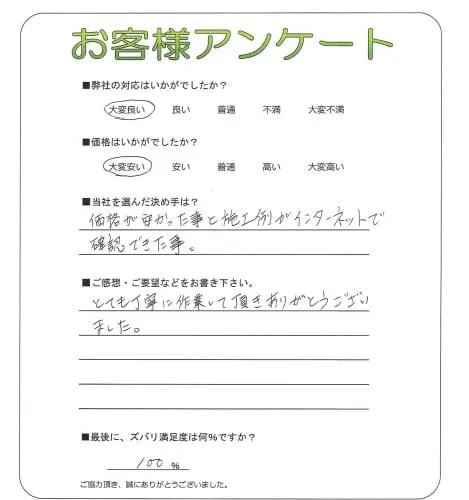 お客様アンケート
■弊社の対応はいかがでしたか？
大変良い 良い 普通 不満 大変不満
■価格はいかがでしたか？
大変安い 安い 普通 高い 大変高い
■当社を選んだ決め手は？
価格が安かった事と施工例がインターネットで
確認できた事。
■ご感想・ご要望などをお書き下さい。
とても丁寧に作業して頂きありがとうござい
ました。
■最後に、ズバリ満足度は何％ですか？
100 ％
ご協力頂き、誠にありがとうございました。